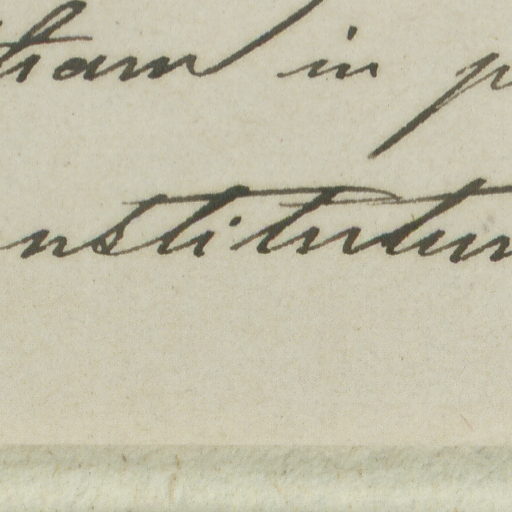 tiam in p
nstitutum